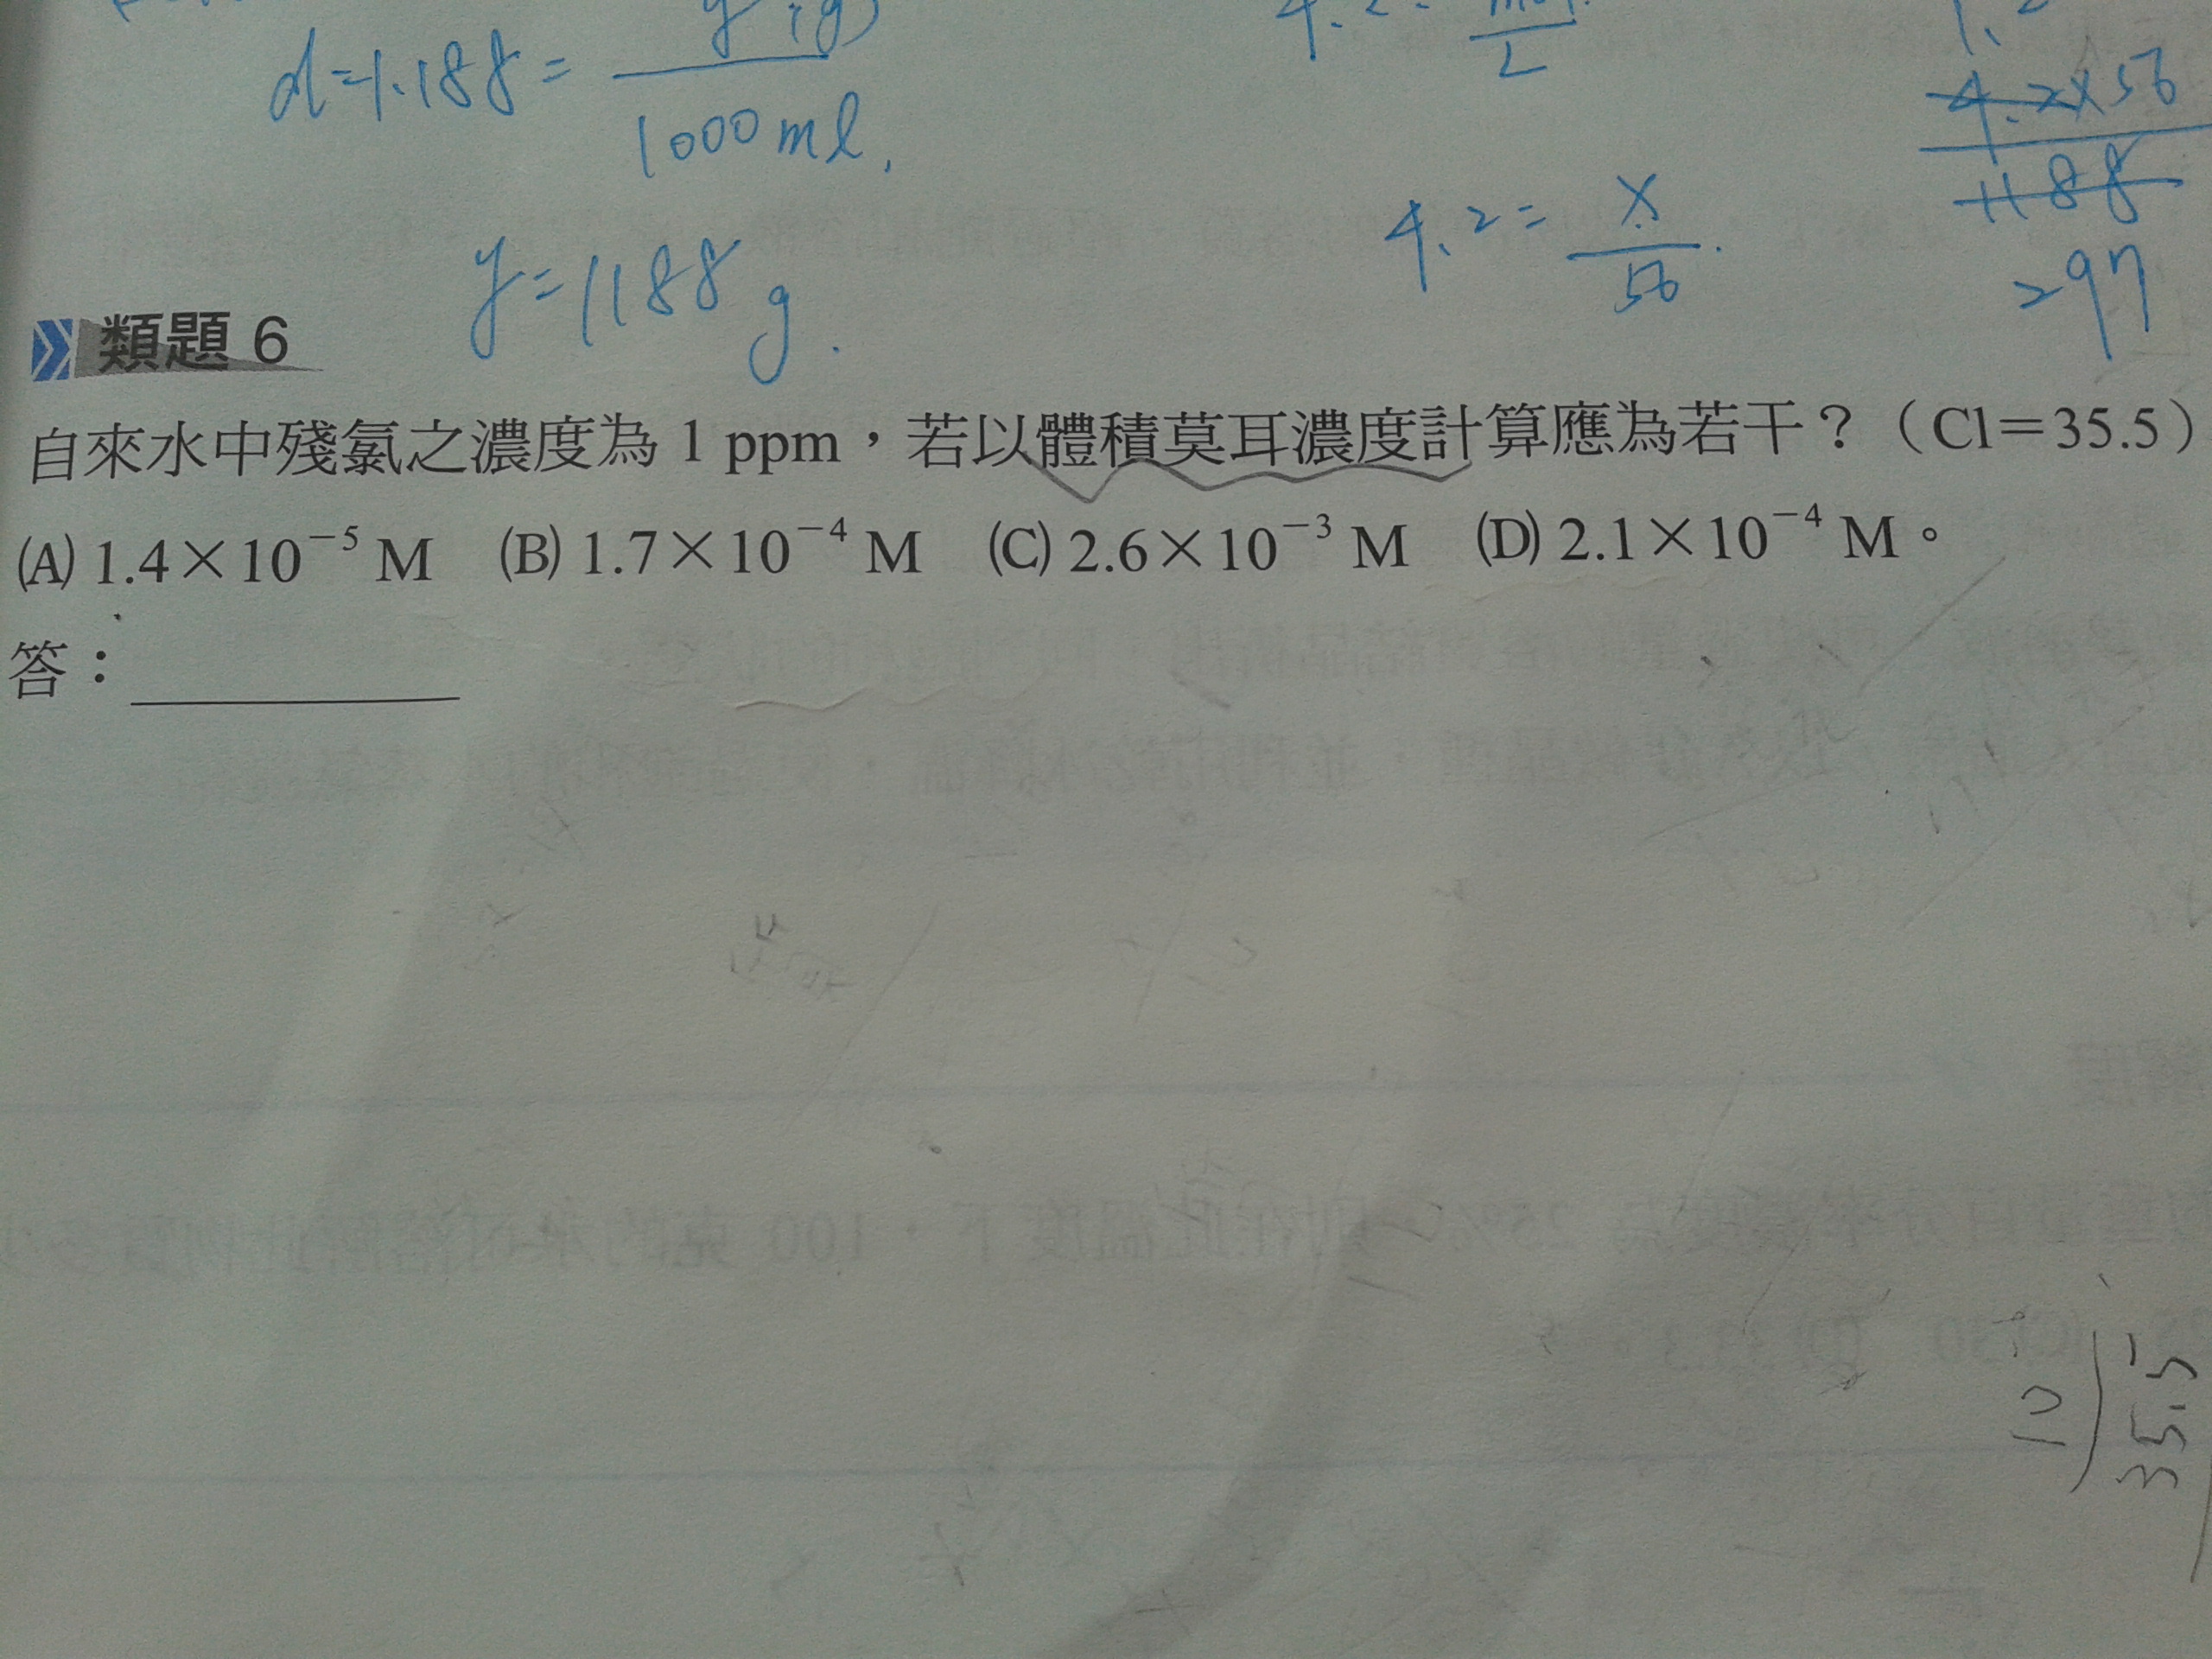 d=1.188=
1000ml.
y=1188g.
4.2=
L
4.2×56
1188
=97
4.2=
x
56
類題 6
自來水中殘氯之濃度為 1 ppm，若以體積莫耳濃度計算應為若干？（Cl＝35.5）
(A) 1.4×10⁻⁵ M (B) 1.7×10⁻⁴ M (C) 2.6×10⁻³ M (D) 2.1×10⁻⁴ M。
答：
35.5